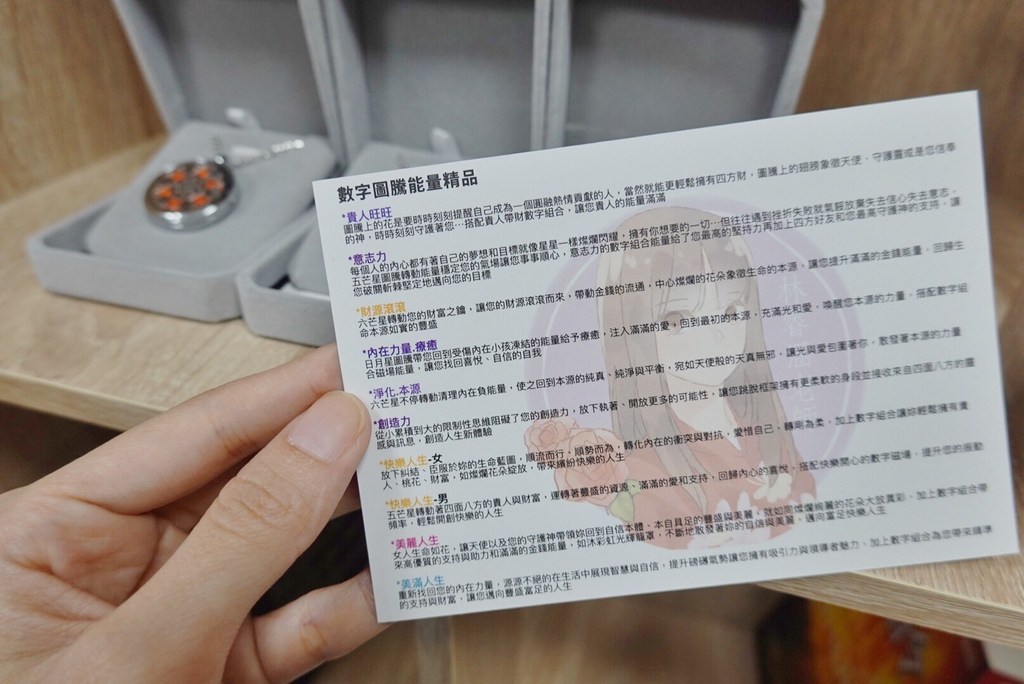 數字圖騰能量精品
*貴人旺旺
圖騰上的花是要時時刻刻提醒自己成為一個圓融熱情貢獻的人，當然就能更輕鬆擁有四方財，圖騰上的翅膀象徵天使、守護靈或是您信奉
的神，時時刻刻守護著您…搭配貴人帶財數字組合，讓您貴人的能量滿滿
*意志力
每個人的內心都有著自己的夢想和目標就像星星一樣燦爛閃耀，擁有你想要的一切…但往往遇到挫折失敗就氣餒放棄失去信心失去意志，
五芒星圖騰轉動能量穩定您的氣場讓您事事順心，意志力的數字組合能量給了您最高的堅持力再加上四方好友和您最高守護神的支持，讓
您破關斬棘堅定地邁向您的目標
*財源滾滾
六芒星轉動您的財富之鑰，讓您的財源滾滾而來，帶動金錢的流通，中心燦爛的花朵象徵生命的本源，讓您提升滿滿的金錢能量，回歸生
命本源如實的豐盛
*內在力量.療癒
日月星圖騰帶您回到受傷內在小孩凍結的能量給予療癒，注入滿滿的愛，回到最初的本源，充滿光和愛，喚醒您本源的力量，搭配數字組
合磁場能量，讓您找回喜悅、自信的自我
*淨化.本源
六芒星不停轉動清理內在負能量，使之回到本源的純真、純淨與平衡，宛如天使般的天真無邪，讓光與愛包圍著你，散發著本源的力量
*創造力
從小累積到大的限制性思維阻礙了您的創造力，放下執著、開放更多的可能性，讓您跳脫框架擁有更柔軟的身段並接收來自四面八方的靈
感與訊息，創造人生新體驗
*快樂人生-女
放下糾結、臣服於妳的生命藍圖，順流而行，順勢而為，轉化內在的衝突與對抗，愛惜自己，轉剛為柔，加上數字組合讓妳輕鬆擁有貴
人、桃花、財富，如燦爛花朵綻放，帶來繽紛快樂的人生
*快樂人生-男
五芒星轉動著四面八方的貴人與財富，運轉著豐盛的資源、滿滿的愛和支持，回歸內心的喜悅，搭配快樂開心的數字磁場，提升您的振動
頻率，輕鬆開創快樂的人生
*美麗人生
女人生命如花，讓天使以及您的守護神帶領妳回到自信本體、本自具足的豐盛與美麗，就如同燦爛絢麗的花朵大放異彩，加上數字組合帶
來高優質的支持與助力和滿滿的金錢能量，如沐彩虹光輝籠罩，不斷地散發著妳的自信與美麗，邁向富足快樂人生
*美滿人生
重新找回您的內在力量，源源不絕的在生活中展現智慧與自信，提升磅礴氣勢讓您擁有吸引力與領導者魅力，加上數字組合為您帶來精準
的支持與財富，讓您邁向豐盛富足的人生